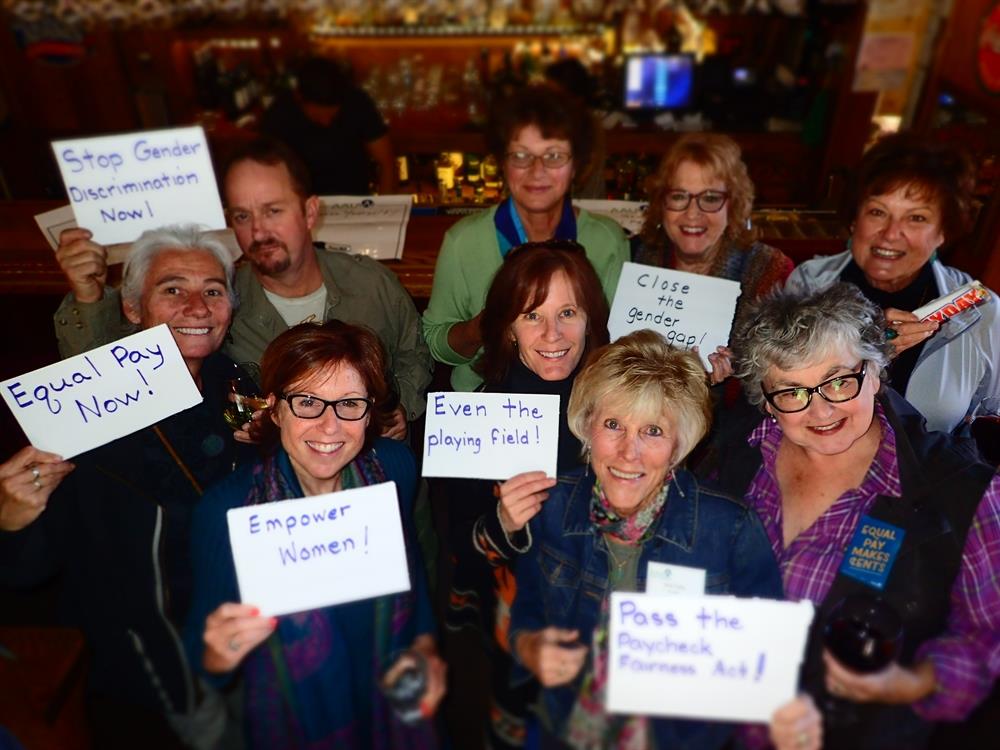 Stop Gender
Discrimination
Now!
AAU
Equal Pay
Now!
Close
the
gender
gap!
Even the
playing field!
Empower
Women!
EQUAL
PAY
MAKES
CENTS
Pass the
Paycheck
Fairness Act!
PAYDAY